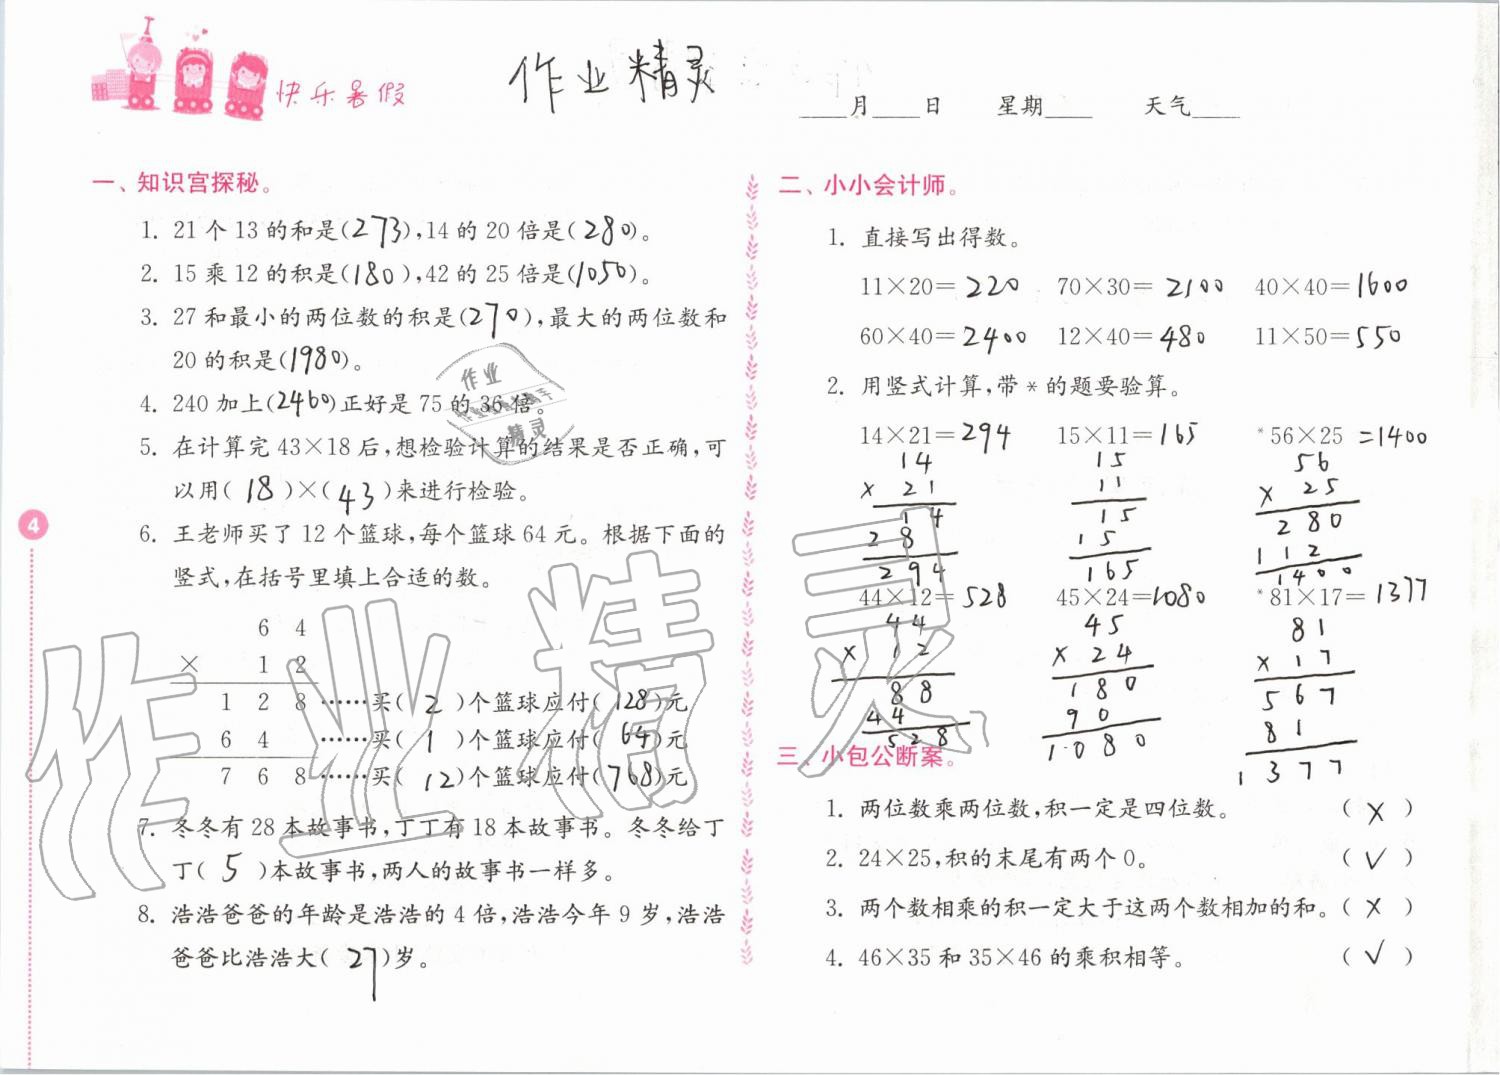 快乐暑假
作业精灵
____月____日 星期____ 天气____
一、知识宫探秘。
1. 21个13的和是(273),14的20倍是(280)。
2. 15乘12的积是(180),42的25倍是(1050)。
3. 27和最小的两位数的积是(270),最大的两位数和
20的积是(1980)。
4. 240加上(2460)正好是75的36倍。
5. 在计算完43×18后,想检验计算的结果是否正确,可
以用(18)×(43)来进行检验。
6. 王老师买了12个篮球,每个篮球64元。根据下面的
竖式,在括号里填上合适的数。
6 4
× 1 2
1 2 8 ……买(2)个篮球应付(128)元
6 4 ……买(1)个篮球应付(64)元
7 6 8 ……买(12)个篮球应付(768)元
7. 冬冬有28本故事书,丁丁有18本故事书。冬冬给丁
丁(5)本故事书,两人的故事书一样多。
8. 浩浩爸爸的年龄是浩浩的4倍,浩浩今年9岁,浩浩
爸爸比浩浩大(27)岁。
4
作业
精灵
作业精灵
二、小小会计师。
1. 直接写出得数。
11×20=220 70×30=2100 40×40=1600
60×40=2400 12×40=480 11×50=550
2. 用竖式计算,带*的题要验算。
14×21=294 15×11=165 *56×25=1400
14 15 56
× 21 11 × 25
14 15 280
28 15 112
294 165 1400
44×12=528 45×24=1080 *81×17=1377
44 45 81
× 12 × 24 × 17
88 180 567
44 90 81
528 1080 1377
三、小包公断案。
1. 两位数乘两位数,积一定是四位数。 (×)
2. 24×25,积的末尾有两个0。 (√)
3. 两个数相乘的积一定大于这两个数相加的和。(×)
4. 46×35和35×46的乘积相等。 (√)